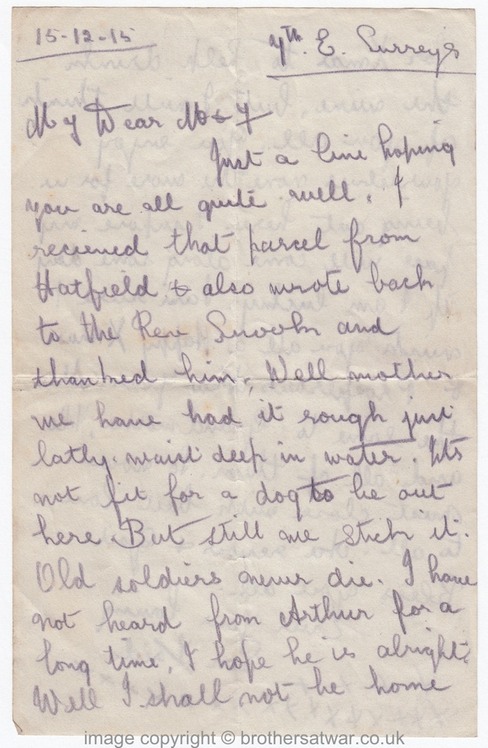 15-12-15
7th. E. Surreys
My Dear M & F
Just a line hoping
you are all quite well. I
recieved that parcel from
Hatfield & also wrote back
to the Rev Snook and
thanked him. Well mother
we have had it rough just
latly waist deep in water. Its
not fit for a dog to be out
here But still we stick it.
Old soldiers never die. I have
not heard from Arthur for a
long time, I hope he is alright.
Well I shall not be home
image copyright © brothersatwar.co.uk